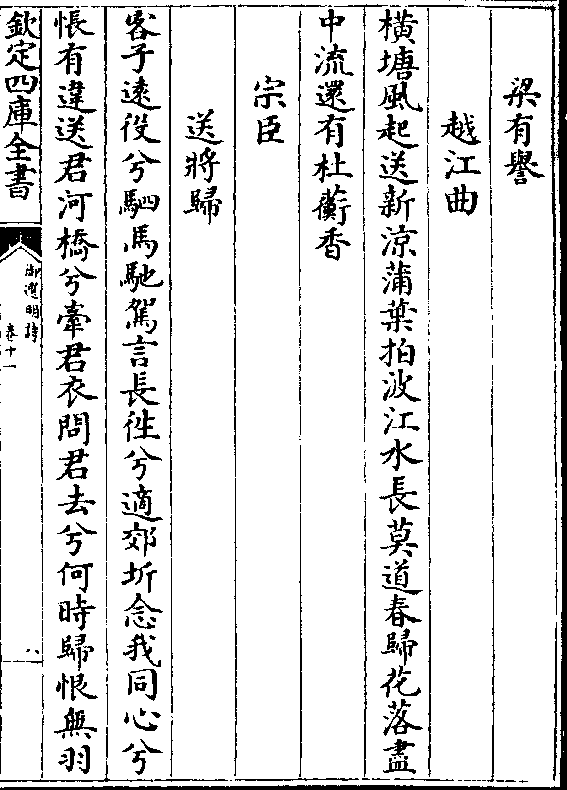 梁有譽
越江曲
橫塘風起送新涼蒲葉拍波江水長莫道春歸花落盡
中流還有杜蘅香
宗臣
送將歸
客子遠役兮駟馬馳駕言長徃兮適郊圻念我同心兮
悵有違送君河橋兮牽君衣問君去兮何時歸恨無羽
欽定四庫全書
御選明詩
卷十一
八